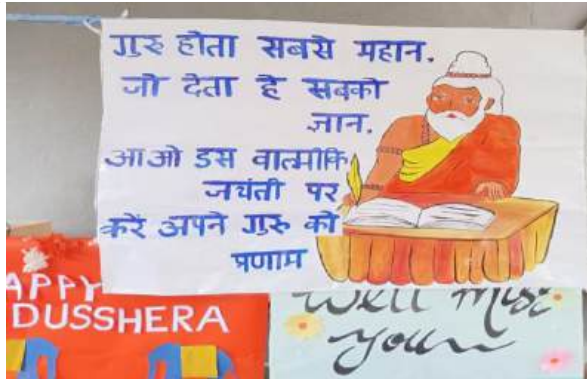 गुरु होता सबसे महान.
जो देता हे सबको
ज्ञान.
आओ इस वाल्मीकि
जयंती पर
करें अपने गुरु को
प्रणाम
APPY
DUSSHERA
Well Miss
you